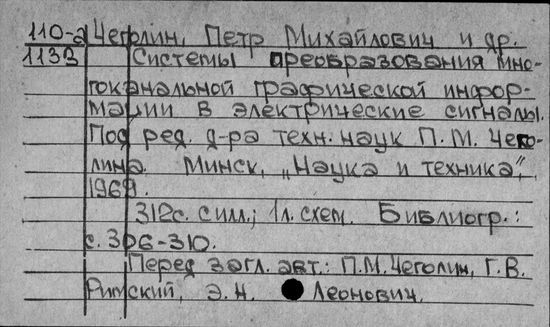 110-2 Чеголин, Петр Михайлович и др.
1133 Системы преобразования мно-
гоканальной графической инфор-
мации в электрические сигналы.
Под ред. д-ра техн. наук П.М. Чего-
лина. Минск, „Наука и техника",
1969.
312с. с илл.; 1л. схем. Библиогр.:
с. 306-310.
Перед загл. авт.: П.М.Чеголин, Г.В.
Римский, Э.Н. Леонович.